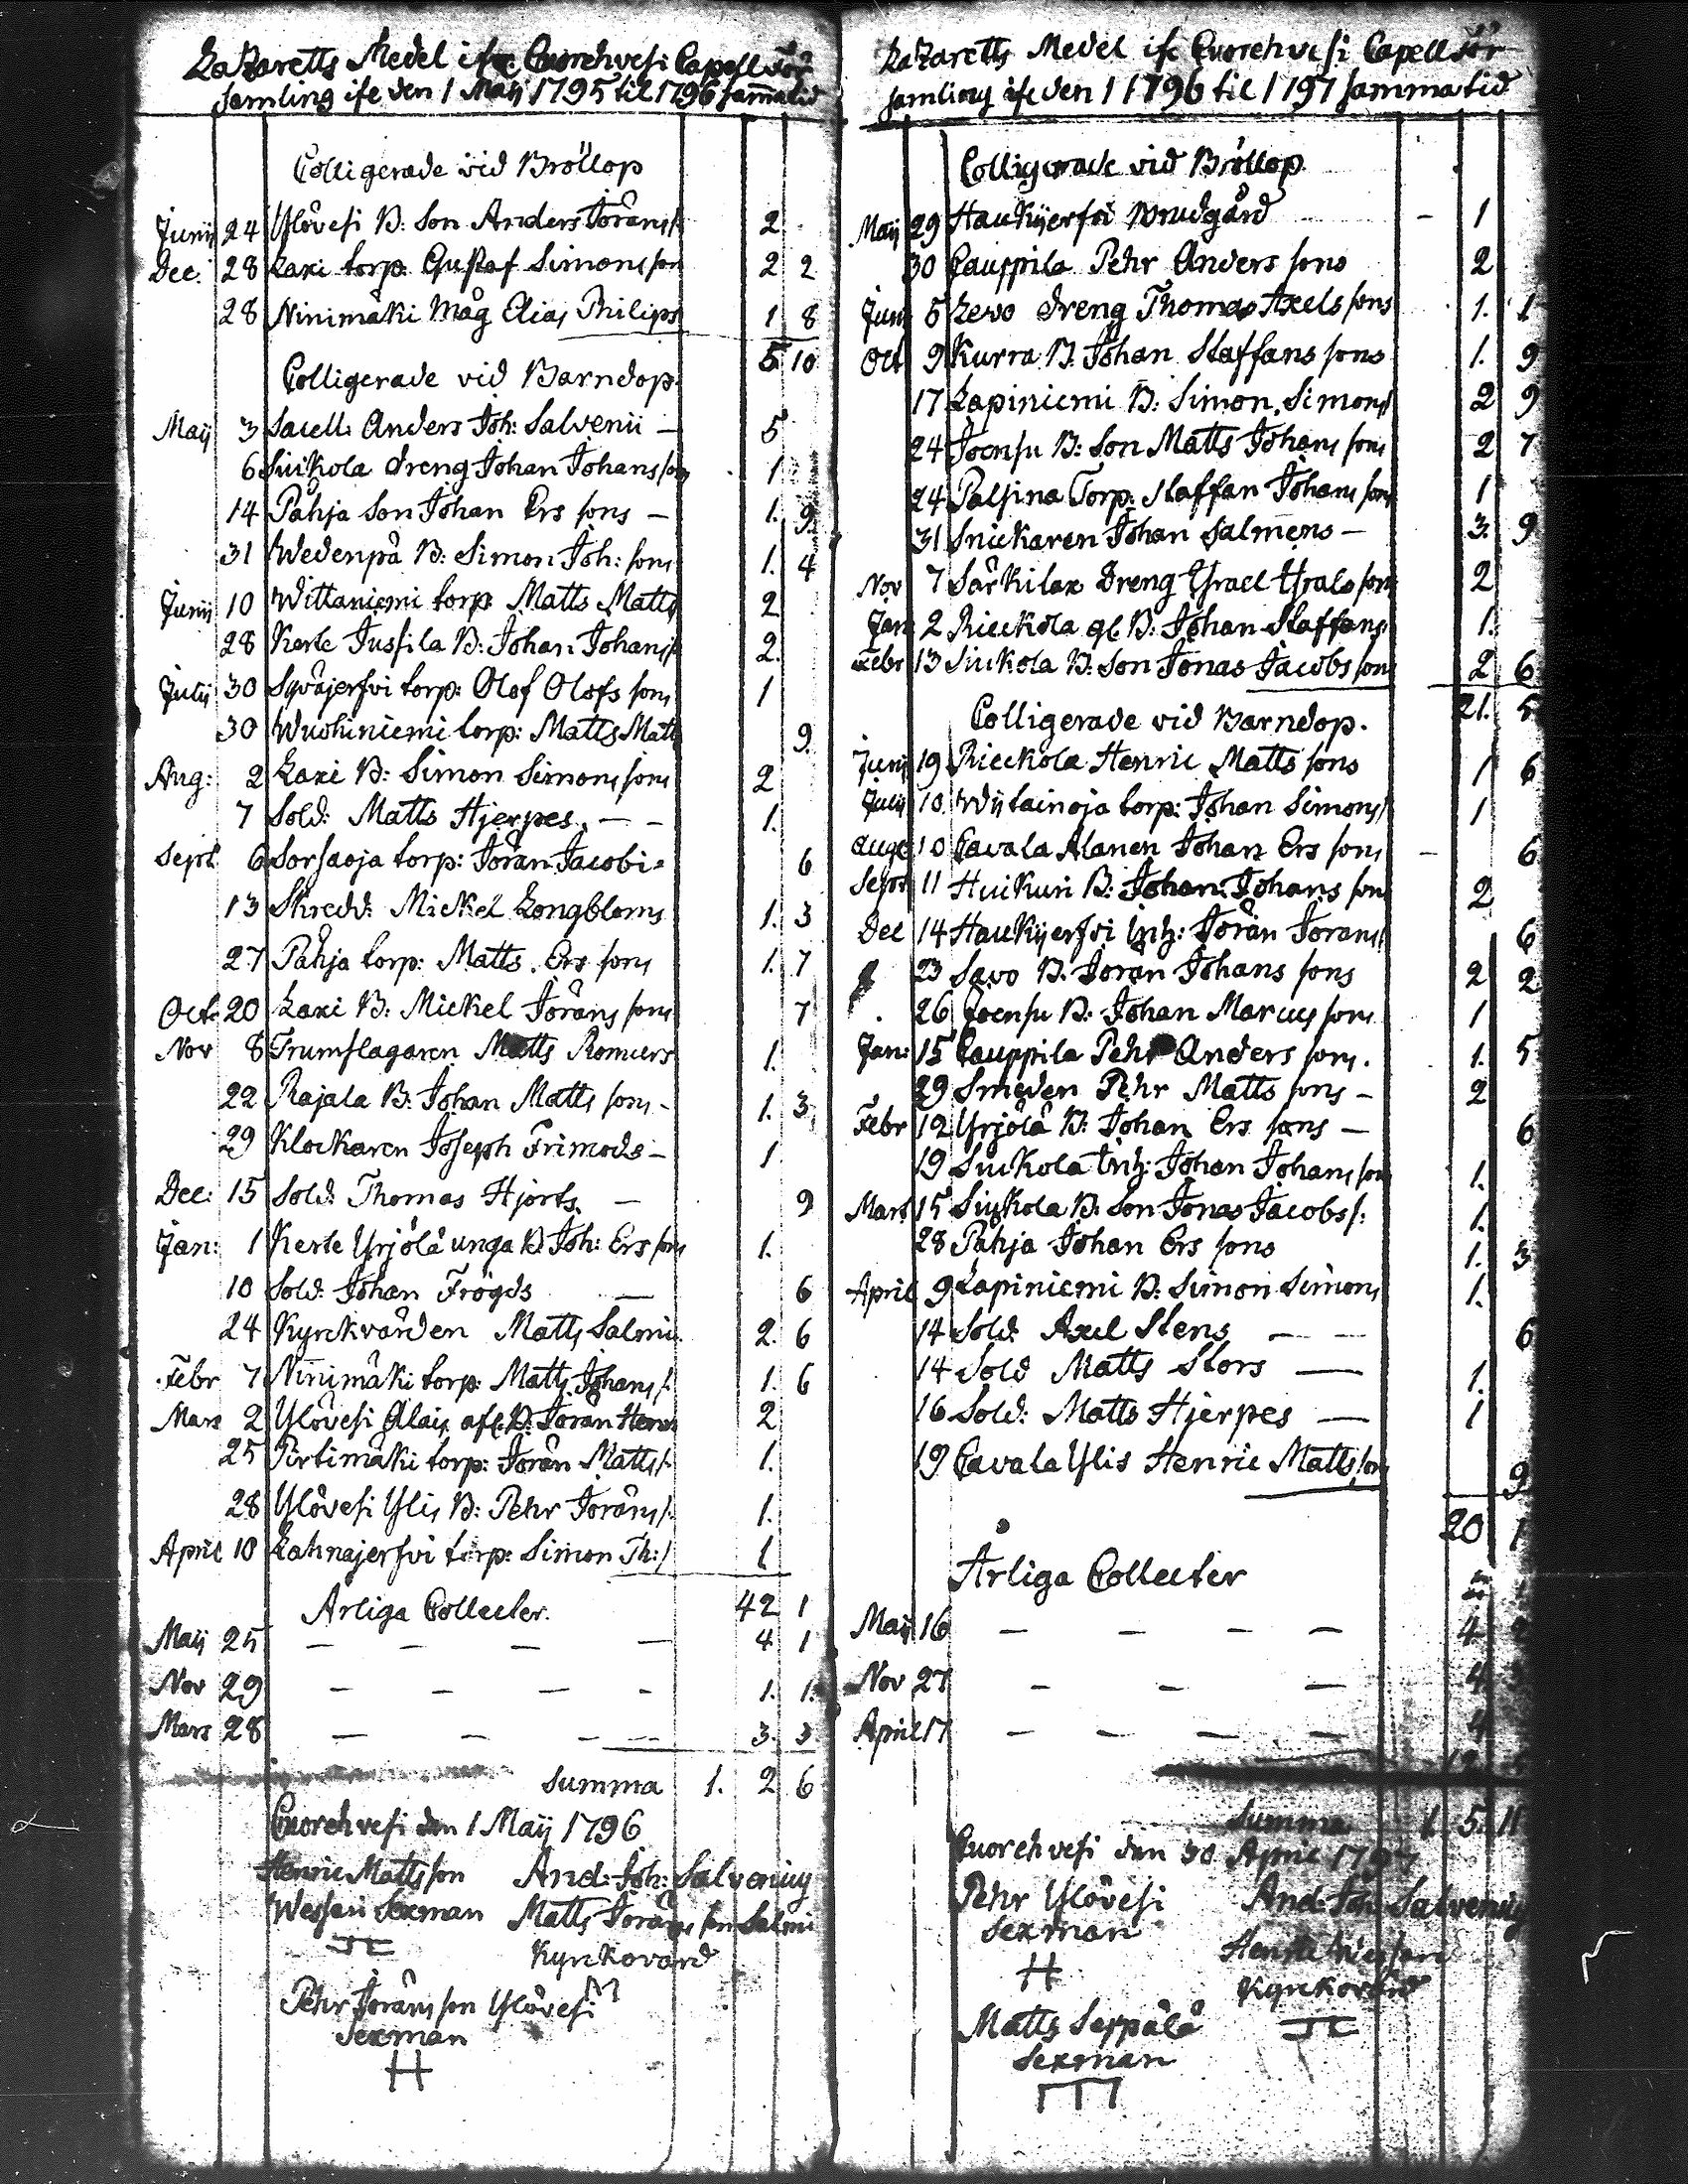 Lazaretts Medel ifr. Cuorehvesi Capell För
samling ifr den 1 Maij 1795 til 1796 samma tid
Colligerade vid Bröllop
Junij 24 Ylövesi B: Son Anders Jöranss: 2
Dec: 28 Laxi torp. Gustaf Simonsson 2 2
28 Ninimäki Måg Elias Philips 1 8
5 10
Colligerade vid Barndop.
Maij 3 Sacell: Anders Joh: Salvenii — 5
6 Siukola dreng Johan Johansson 1
14 Påhja Son Johan Ers sons — 1. 9
31 Wedenpä B: Simon Joh: sons 1. 4
Junij 10 Wittaniemi torp: Matts Matts 2
28 Kerte Jussila B: Johan Johanss 2.
Julij 30 Syväjerfvi torp: Olof Olofs sons 1
30 Wuohiniemi torp: Matts Matts 9.
Aug: 2 Laxi B: Simon Simons sons 2
7 Sold: Matts Hjerpes. — — 1.
Sept. 6 Sorsaoja torp: Jöran Jacobi= 6
13 Skredd: Mickel Longbloms 1. 3
27 Påhja torp: Matts Ers sons 1. 7
Oct: 20 Laxi B: Mickel Jörans sons 7
Nov 8 Trumslagaren Matts Romuers 1.
22 Rajala B: Johan Matts sons - 1. 3
29 Klockaren Joseph Frimods — 1.
Dec: 15 Sold: Thomas Hjorts. — 9
Jan: 1 Kerte Yrjölä unga B: Joh: Ers sons 1.
10 Sold: Johan Frögds — 6
24 Kyrckvärden Matts Salmi 2. 6
Febr 7 Ninimäki torp: Matts Johans s: 1. 6
Mars 2 Ylövesi Alais B: Jöran Henr 2
25 Pirtimäki torp: Jöran Matts s: 1.
28 Ylövesi Ylis B: Pehr Jörans s: 1.
April 10 Lahnajerfvi torp: Simon Th: s 1
42 1
Årliga Collecter.
Maij 25 — — — — 4 1
Nov 29 — — — - 1. 1.
Mars 28 — — — — 3. 3
Summa 1. 2 6
Cuorehvesi den 1 Maij 1796
Henric Mattsson And: Joh: Salvenius
Wessari Sexman Matts Jörans son Salmi
Kyrckovärd
Pehr Jörans son Ylövesi
Sexman
Lazaretts Medel ifr Cuorehvesi Capell För
samling ifr den 1 1796 til 1797 samma tid
Colligerade vid Bröllop
Maij 29 Haukijerfvi Brudgård — 1
30 Cauppila Pehr Anders sons 2
Junij 5 Levo dreng Thomas Axels sons 1. 1
Oct 9 Kurra B: Johan Staffans sons 1. 9
17 Lapiniemi B: Simon Simons 2 9
24 Joensu B: Son Matts Johans sons 2 7
24 Palsina Torp: Staffan Johans sons 1
31 Snickaren Johan Salmens — 3. 9
Nov 7 Särkilax Dreng Ysrael Ysrals sons 2
Jan 2 Rieckola gl. B: Johan Staffans 1.
Febr 13 Siukola B: Son Jonas Jacobs sons 2 6
21. 5
Colligerade vid Barndop.
Junij 19 Rieckola Henric Matts sons 1 6
Julij 10 Wijtainoja torp: Johan Simons s 1
Aug 10 Cavala Alanen Johan Ers sons — 6
Sept 11 Huikuri B: Johan Johans sons 2
Dec 14 Haukijerfvi Inh: Jöran Jörans s 6
23 Savo B: Jöran Johans sons 2 2
26 Joensu B: Johan Marcus sons 1
Jan: 15 Cauppila Pehr Anders sons. 1. 5
29 Smeden Pehr Matts sons — 2
Febr 12 Yrjölä B: Johan Ers sons — 6
19 Siukola Inh: Johan Johans sons 1.
Mars 15 Siukola B: Son Jonas Jacobs s: 1.
28 Påhja Johan Ers sons 1. 3
April 9 Lapiniemi B: Simon Simons 1.
14 Sold: Axel Stens — — 6
14 Sold Matts Stors — 1.
16 Sold: Matts Hjerpes — 1
19 Cavala Ylis Henric Matts sons 9
20 1
Årliga Collecter
Maij 16 — — — — 4 2
Nov 27 — — — 4
April 17 — — — — 4
Summa 1 5. 11
Cuorehvesi den 30 April 1797
Pehr Ylövesi And: Joh: Salvenius
Sexman
Kyrckovärd
Matts Seppälä
Sexman